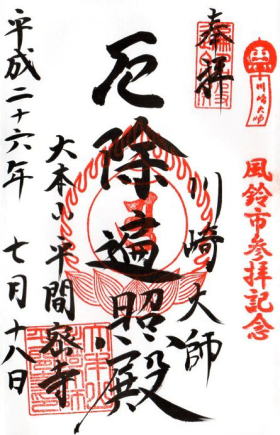 川崎大師
風鈴市参拝記念
奉拝
川崎大師
厄除遍照殿
大本山平間寺
平成二十六年 七月十八日